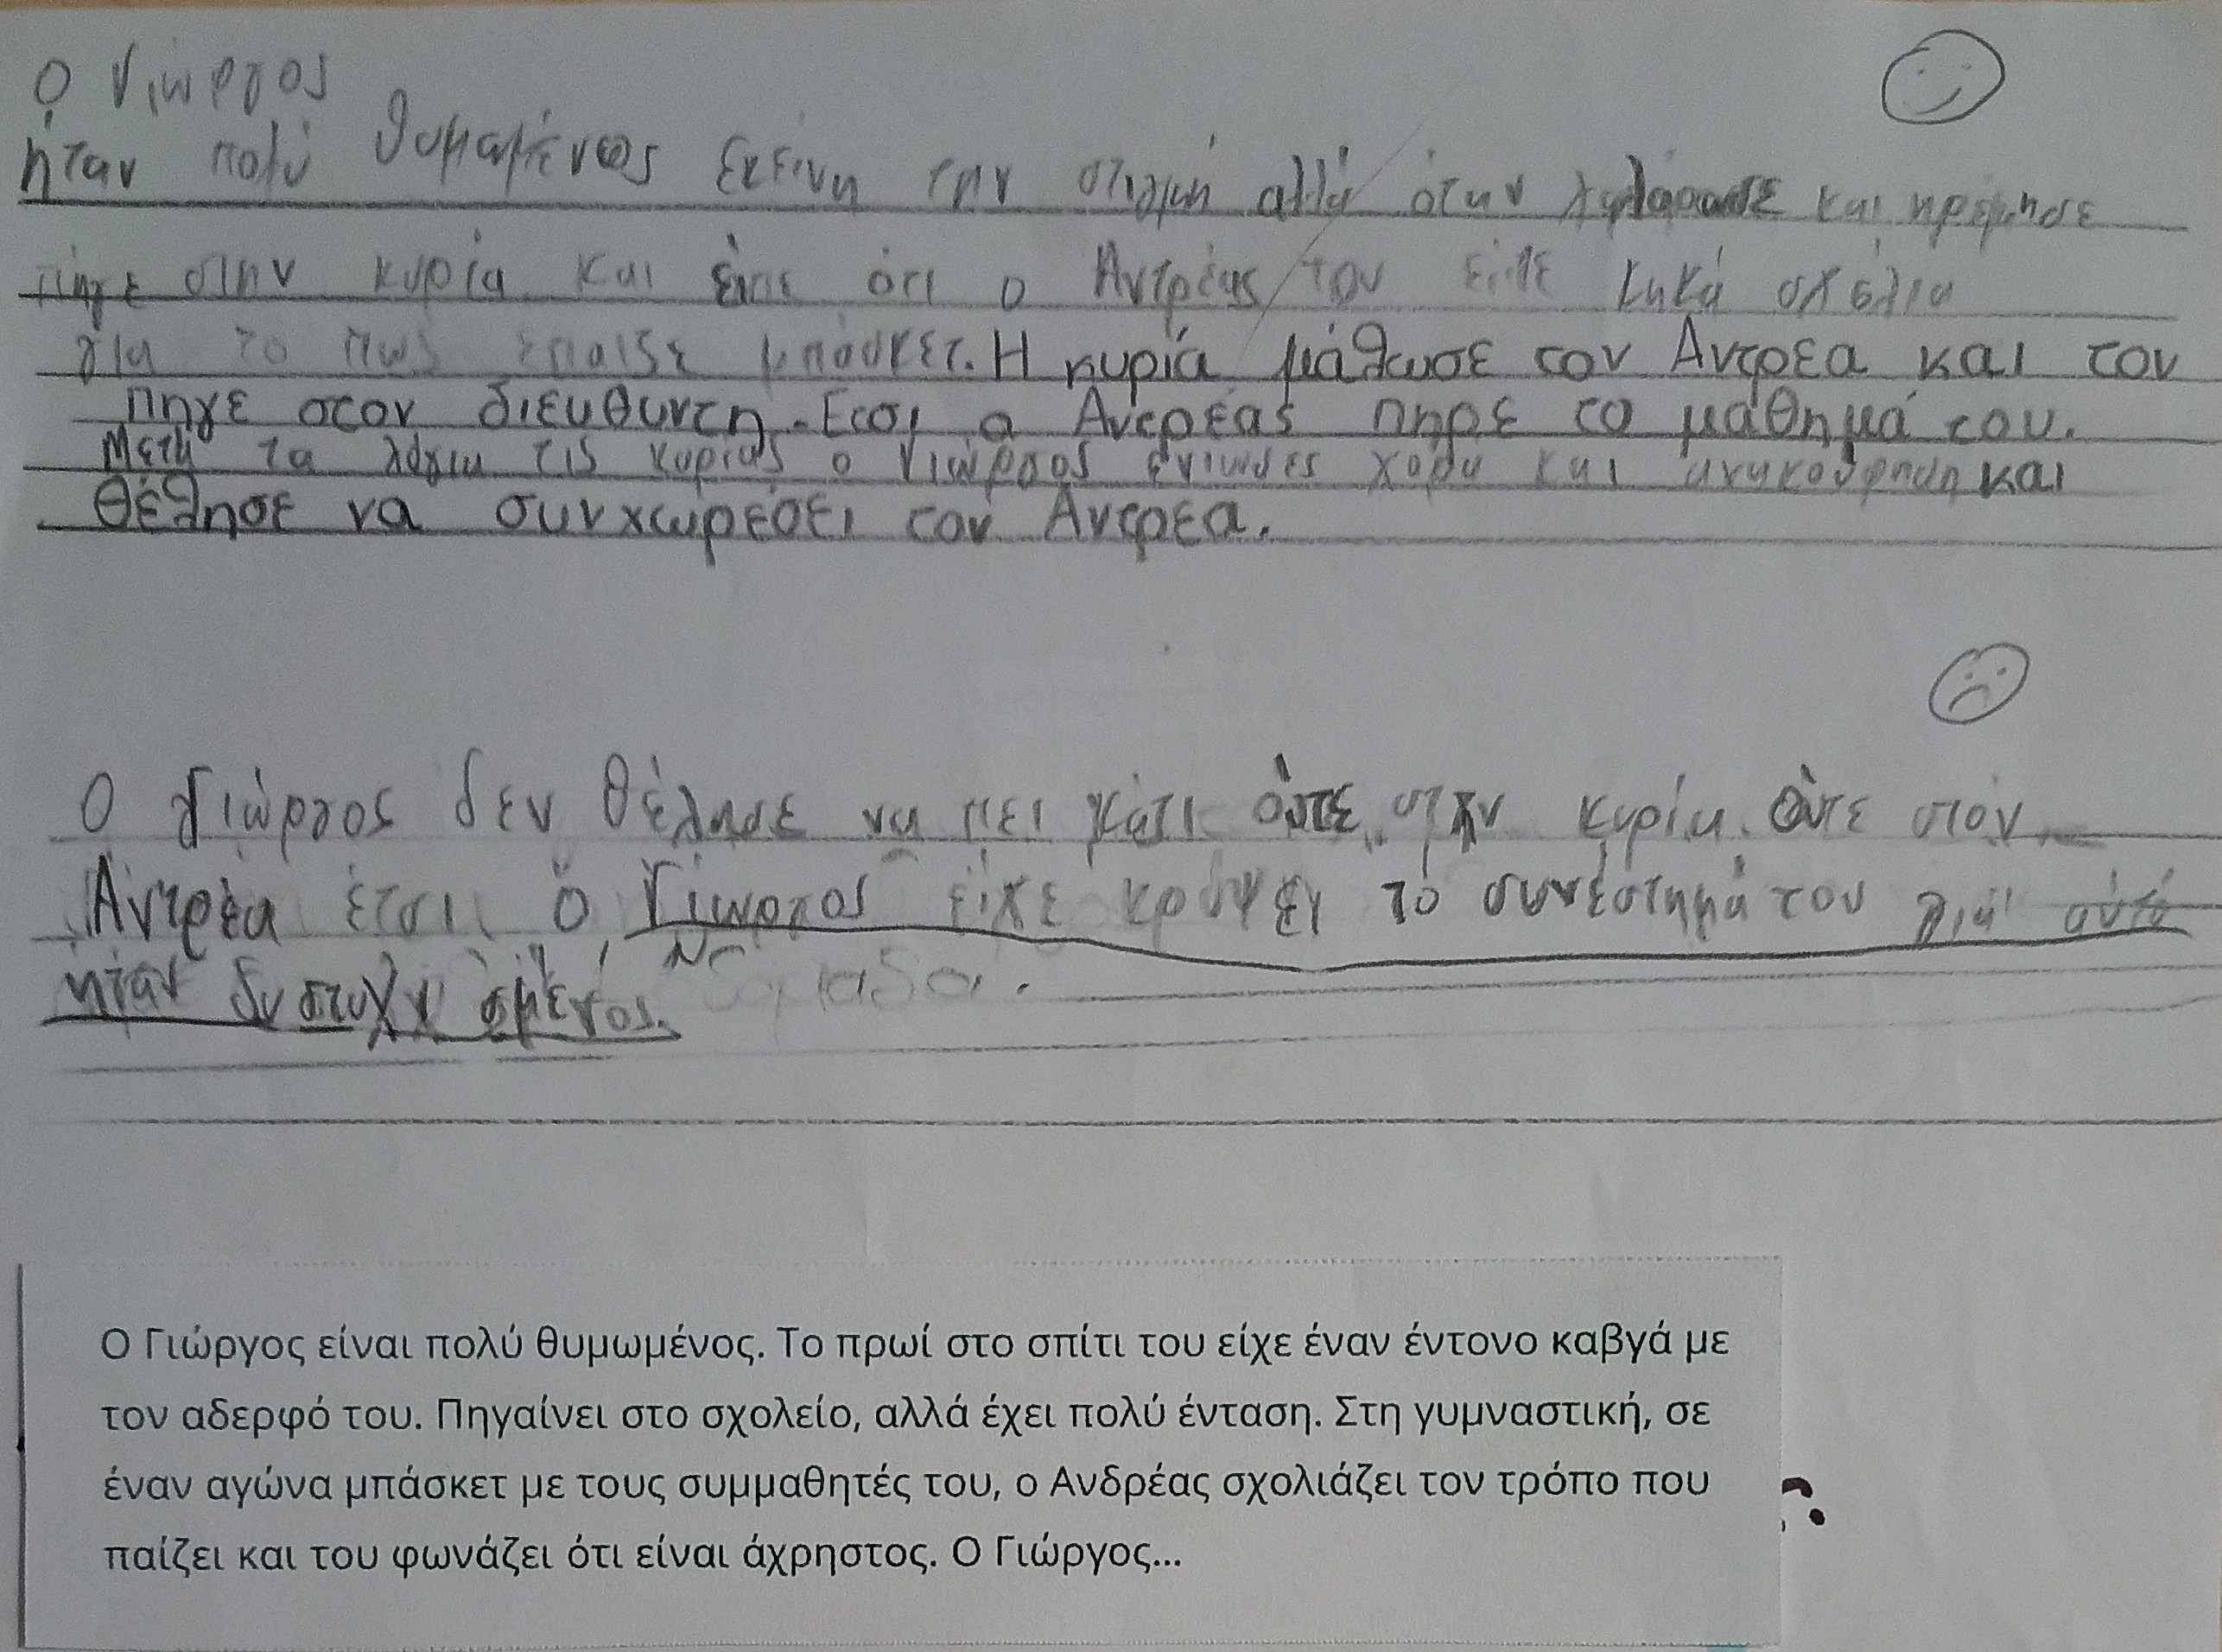 Ο Γιώργος
ήταν πολύ θυμαμένος εκείνη την στιγμή αλλά όταν και ηρέμησε
πήγε στην κυρία και είπε ότι ο Αντρέας του είπε κακά σχόλια
για το πως έπαιξε μπάσκετ. Η κυρία μάλωσε τον Αντρέα και τον
πηγε στον διευθυντη. Ετσι ο Αντρέας πηρε το μάθημά του.
Μετά τα λόγια τις κυρίας ο Γιώργος ένιωσες χαρά και ανακούφηση και
θέλησε να συνχωρέσει τον Αντρέα.
Ο Γιώργος δεν θέλησε να πει κάτι όυτε στην κυρία όυτε στον
Αντρέα έτσι ο Γιώργος είχε κρύψει το συνέστημά του γιαυτό
ήταν δυστυχισμένος.
Ο Γιώργος είναι πολύ θυμωμένος. Το πρωί στο σπίτι του είχε έναν έντονο καβγά με
τον αδερφό του. Πηγαίνει στο σχολείο, αλλά έχει πολύ ένταση. Στη γυμναστική, σε
έναν αγώνα μπάσκετ με τους συμμαθητές του, ο Ανδρέας σχολιάζει τον τρόπο που
παίζει και του φωνάζει ότι είναι άχρηστος. Ο Γιώργος...